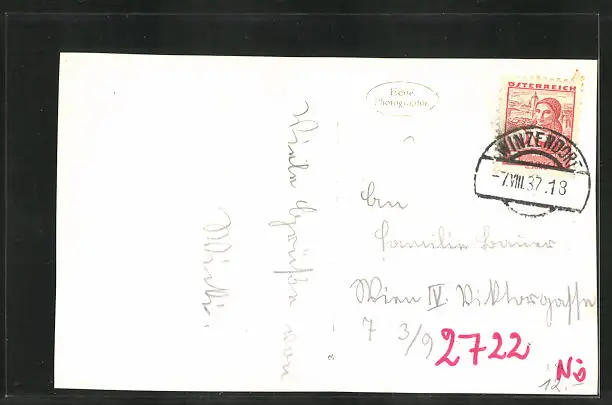 Echte
Photographie
ÖSTERREICH
WINZENDORF
-7.VIII.37.18
Viele Grüße von
An
Familie Bauer
Wien IV. Viktorgasse
7 3/9
2722
Nö
12.-